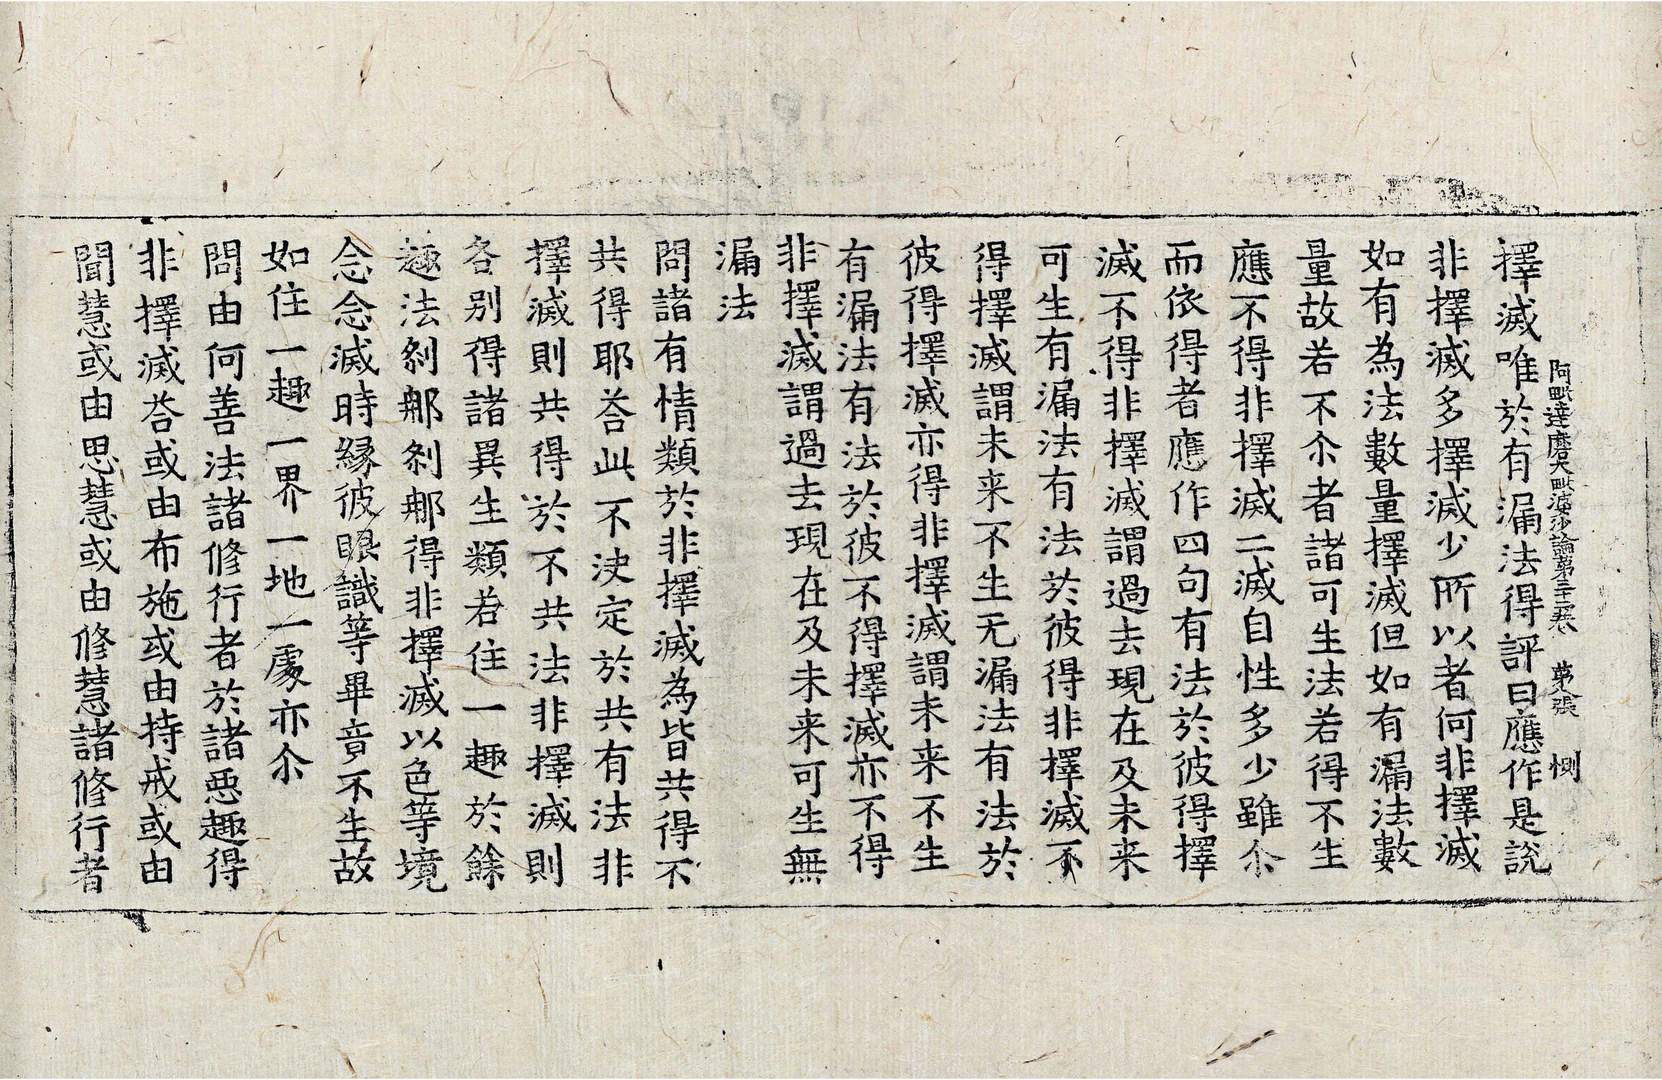 阿毗達磨大毗婆沙論第三十二卷 第 張 惻
擇滅唯於有漏法得評曰應作是說
非擇滅多擇滅少所以者何非擇滅
如有為法數量擇滅但如有漏法數
量故若不尒者諸可生法若得不生
應不得非擇滅二滅自性多少雖尒
而依得者應作四句有法於彼得擇
滅不得非擇滅謂過去現在及未来
可生有漏法有法於彼得非擇滅不
得擇滅謂未来不生无漏法有法於
彼得擇滅亦得非擇滅謂未来不生
有漏法有法於彼不得擇滅亦不得
非擇滅謂過去現在及未来可生無
漏法
問諸有情類於非擇滅為皆共得不
共得耶荅此不決定於共有法非
擇滅則共得於不共法非擇滅則
各別得諸異生類若住一趣於餘
趣法剎那剎那得非擇滅以色等境
念念滅時緣彼眼識等畢竟不生故
如住一趣一界一地一處亦尒
問由何善法諸修行者於諸惡趣得
非擇滅荅或由布施或由持戒或由
聞慧或由思慧或由修慧諸修行者